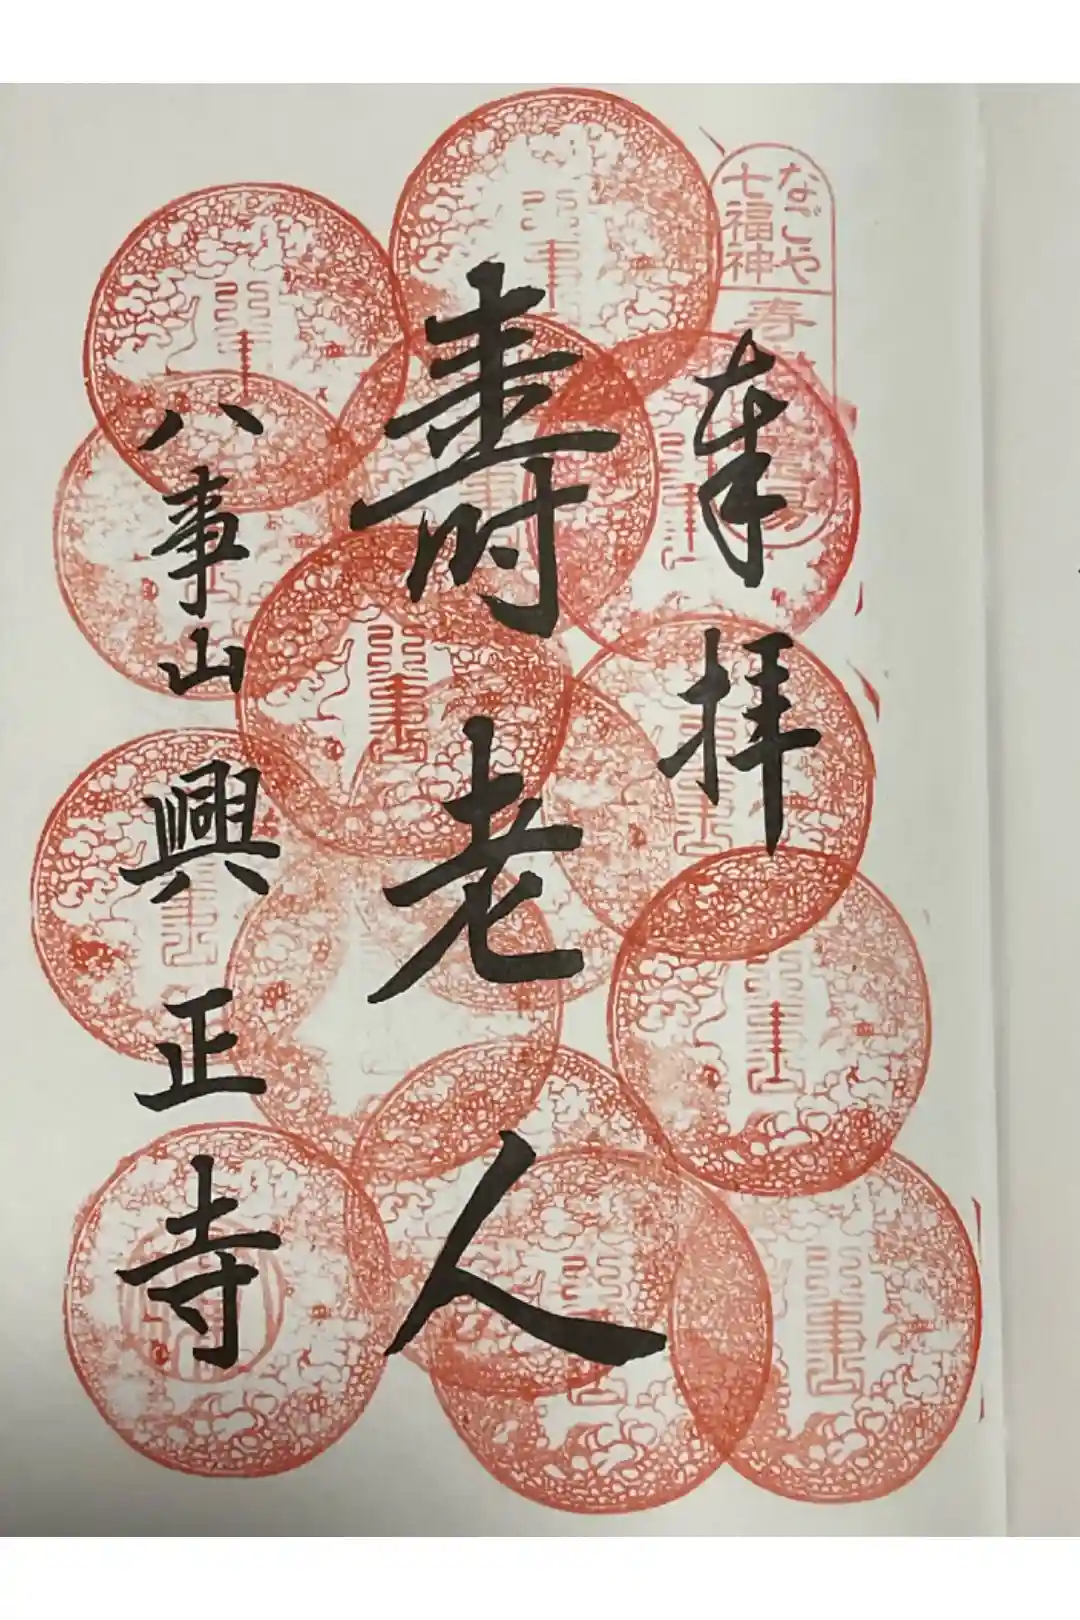 なごや
七福神
寿老人
奉拝
寿老人
八事山興正寺